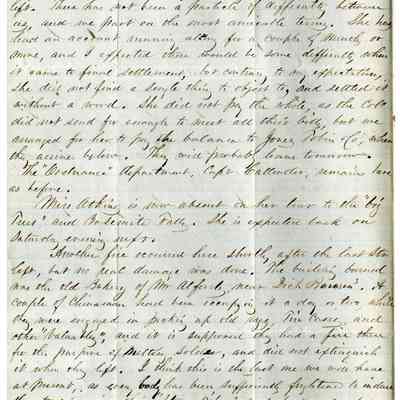 left. There has not been a particle of difficulty between
us, and we part on the most amicable terms. She has
had an account running along for a couple of months or
more, and I expected there would be some difficulty when
it came to final settlement, but contrary to my expectations,
she did not find a single thing to object to, and settled it
without a word. She did not pay the whole, as the Col.
did not send for enough to meet all their bills, but we
arranged for her to pay the balance to Jones, & Co, when
the accrue below. They will probably leave tomorrow.
The "Ordnance" department, Capt. Callender, remain here
as before.
Miss Atkins is now absent on her tour to the "big
Trees" and Yosemite Falls. She is expected back on
Saturday evening next.
Another fire occurred here shortly after the last Str
left, but no real damage was done. The building burned
was the old Bakery of Mr Alford, near Dick. A
couple of Chinamen had been occupying it a day or two while
they were engaged in picking up old rags, tin cases, and
other "Valuables", and it is supposed they had a fire there
for the purpose of melting solder, and did not extinguish
it when they left. I think this is the last one we will have
at present, as every body has been sufficiently frightened to